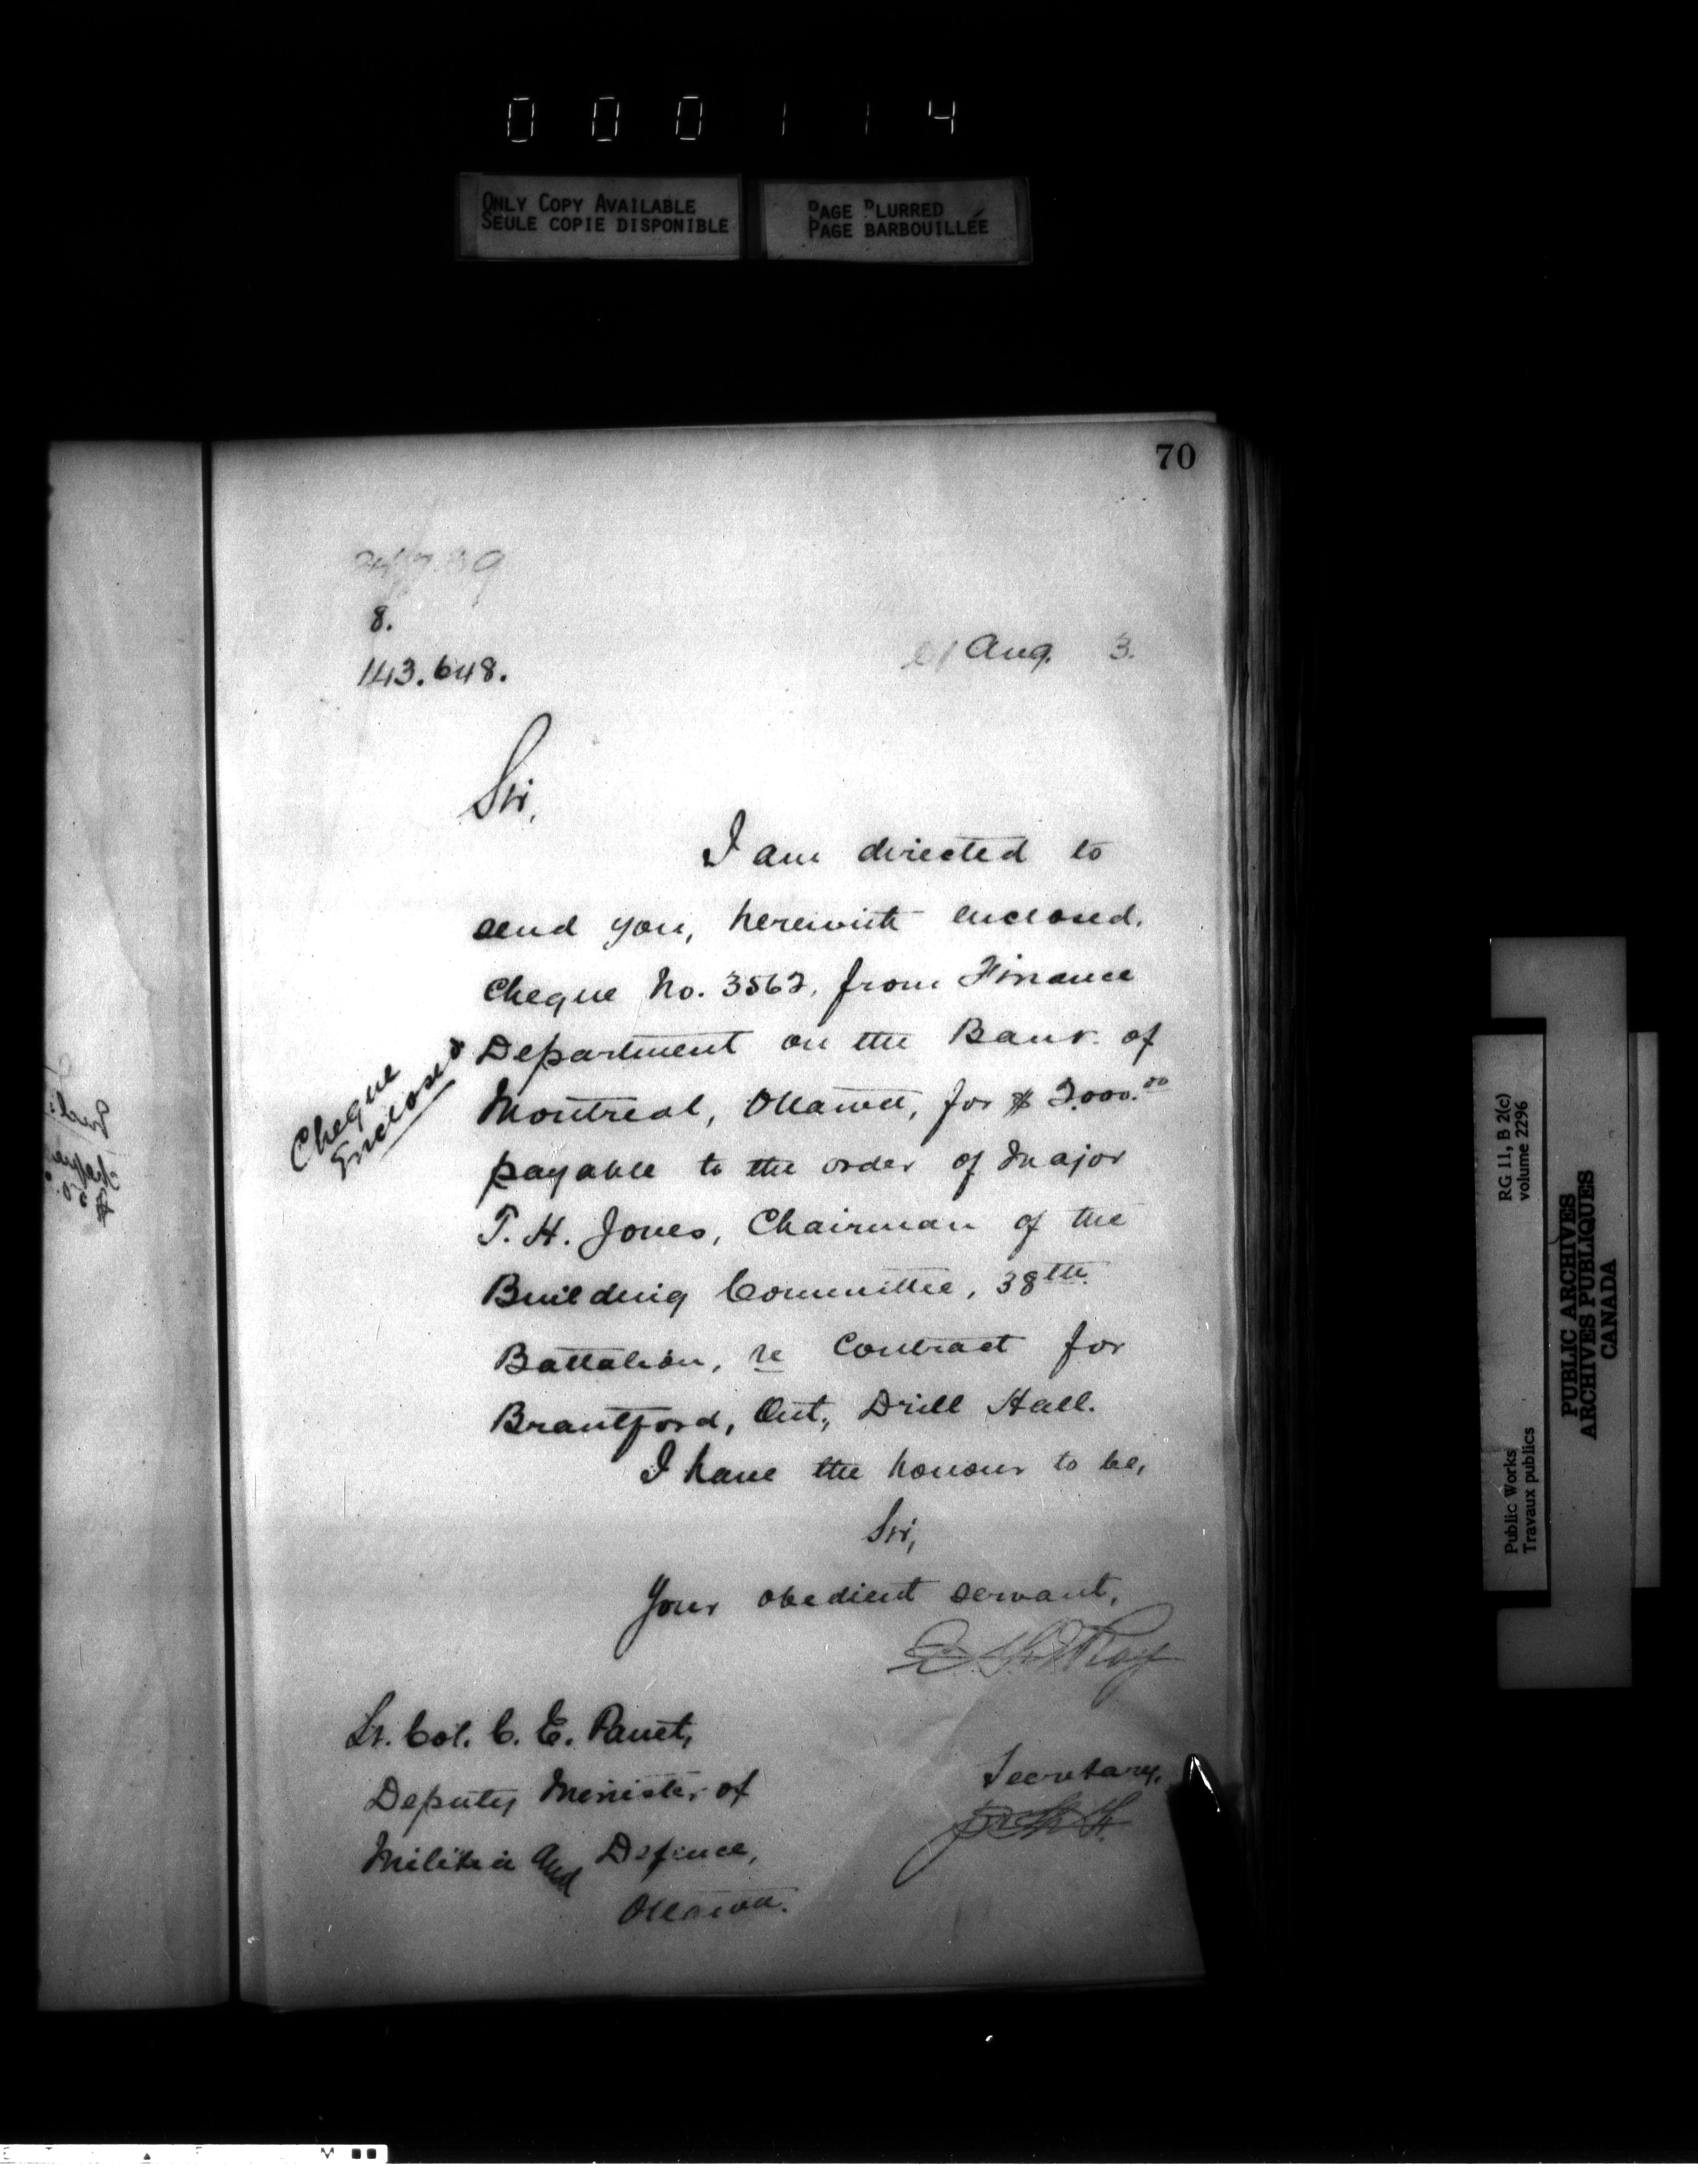 000114
ONLY COPY AVAILABLE
SEULE COPIE DISPONIBLE
PAGE BLURRED
PAGE BARBOUILLÉE
70
8.
143.648.
Aug. 3.
Sir,
I am directed to
send you, herewith enclosed,
Cheque No. 3562, from Finance
Department on the Bank of
Montreal, Ottawa, for $2,000.00
payable to the order of Major
T. H. Jones, Chairman of the
Building Committee, 38th
Battalion, re Contract for
Brantford, Ont., Drill Hall.
Cheque
Enclosed
I have the honour to be,
Sir,
Your obedient servant,
Secretary.
Lt. Col. C. E. Panet,
Deputy Minister of
Militia and Defence,
Ottawa.
RG 11, B 2(c)
volume 2296
Public Works
Travaux publics
PUBLIC ARCHIVES
ARCHIVES PUBLIQUES
CANADA